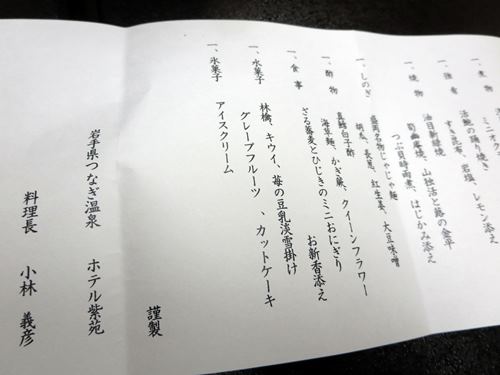 一、煮物
ミニ
添え
一、強肴
活鮑の踊り焼き
すき昆布、岩塩、レモン添え
一、焼物
油目新緑焼
筍幽庵焼、山独活と蕗の金平
つぶ貝時雨煮、はじかみ添え
一、しのぎ
盛岡名物じゃじゃ麺
胡瓜、長葱、紅生姜、大豆味噌
一、酢物
真鱈白子酢
海草麺、かぎ蕨、クィーンフラワー
一、食事
ざる蕎麦とひじきのミニおにぎり
お新香添え
一、水菓子
林檎、キウイ、苺の豆乳淡雪掛け
グレープフルーツ、カットケーキ
一、氷菓子
アイスクリーム
謹製
岩手県つなぎ温泉 ホテル紫苑
料理長 小林 義彦